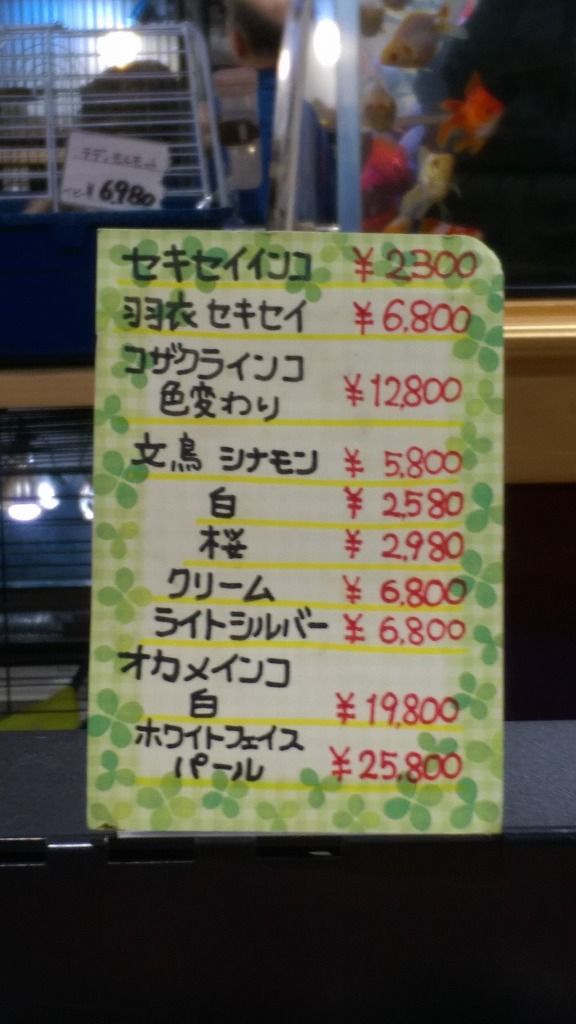 ¥6,980
セキセイインコ ¥2300
羽衣セキセイ ¥6,800
コザクラインコ
色変わり ¥12,800
文鳥 シナモン ¥5,800
白 ¥2,580
桜 ¥2,980
クリーム ¥6,800
ライトシルバー ¥6,800
オカメインコ
白 ¥19,800
ホワイトフェイス
パール ¥25,800